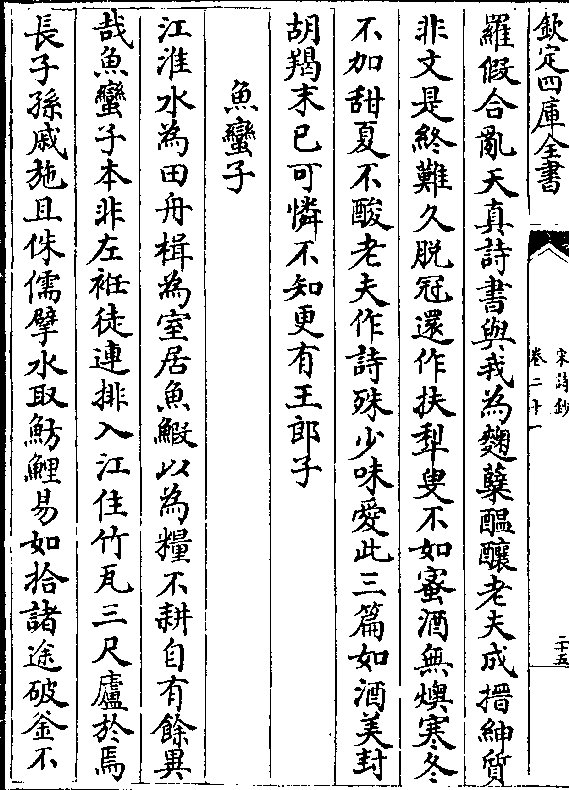 欽定四庫全書
宋詩鈔
卷二十一
二十五
羅假合亂天真詩書與我為麴糵醖釀老夫成搢紳質
非文是終難久脱冠還作扶犁叟不如蜜酒無燠寒冬
不加甜夏不酸老夫作詩殊少味愛此三篇如酒美封
胡羯末已可憐不知更有王郎子
魚蠻子
江淮水為田舟楫為室居魚鰕以為糧不耕自有餘異
哉魚蠻子本非左袵徒連排入江住竹瓦三尺廬於焉
長子孫戚施且侏儒擘水取魴鯉易如拾諸途破釜不